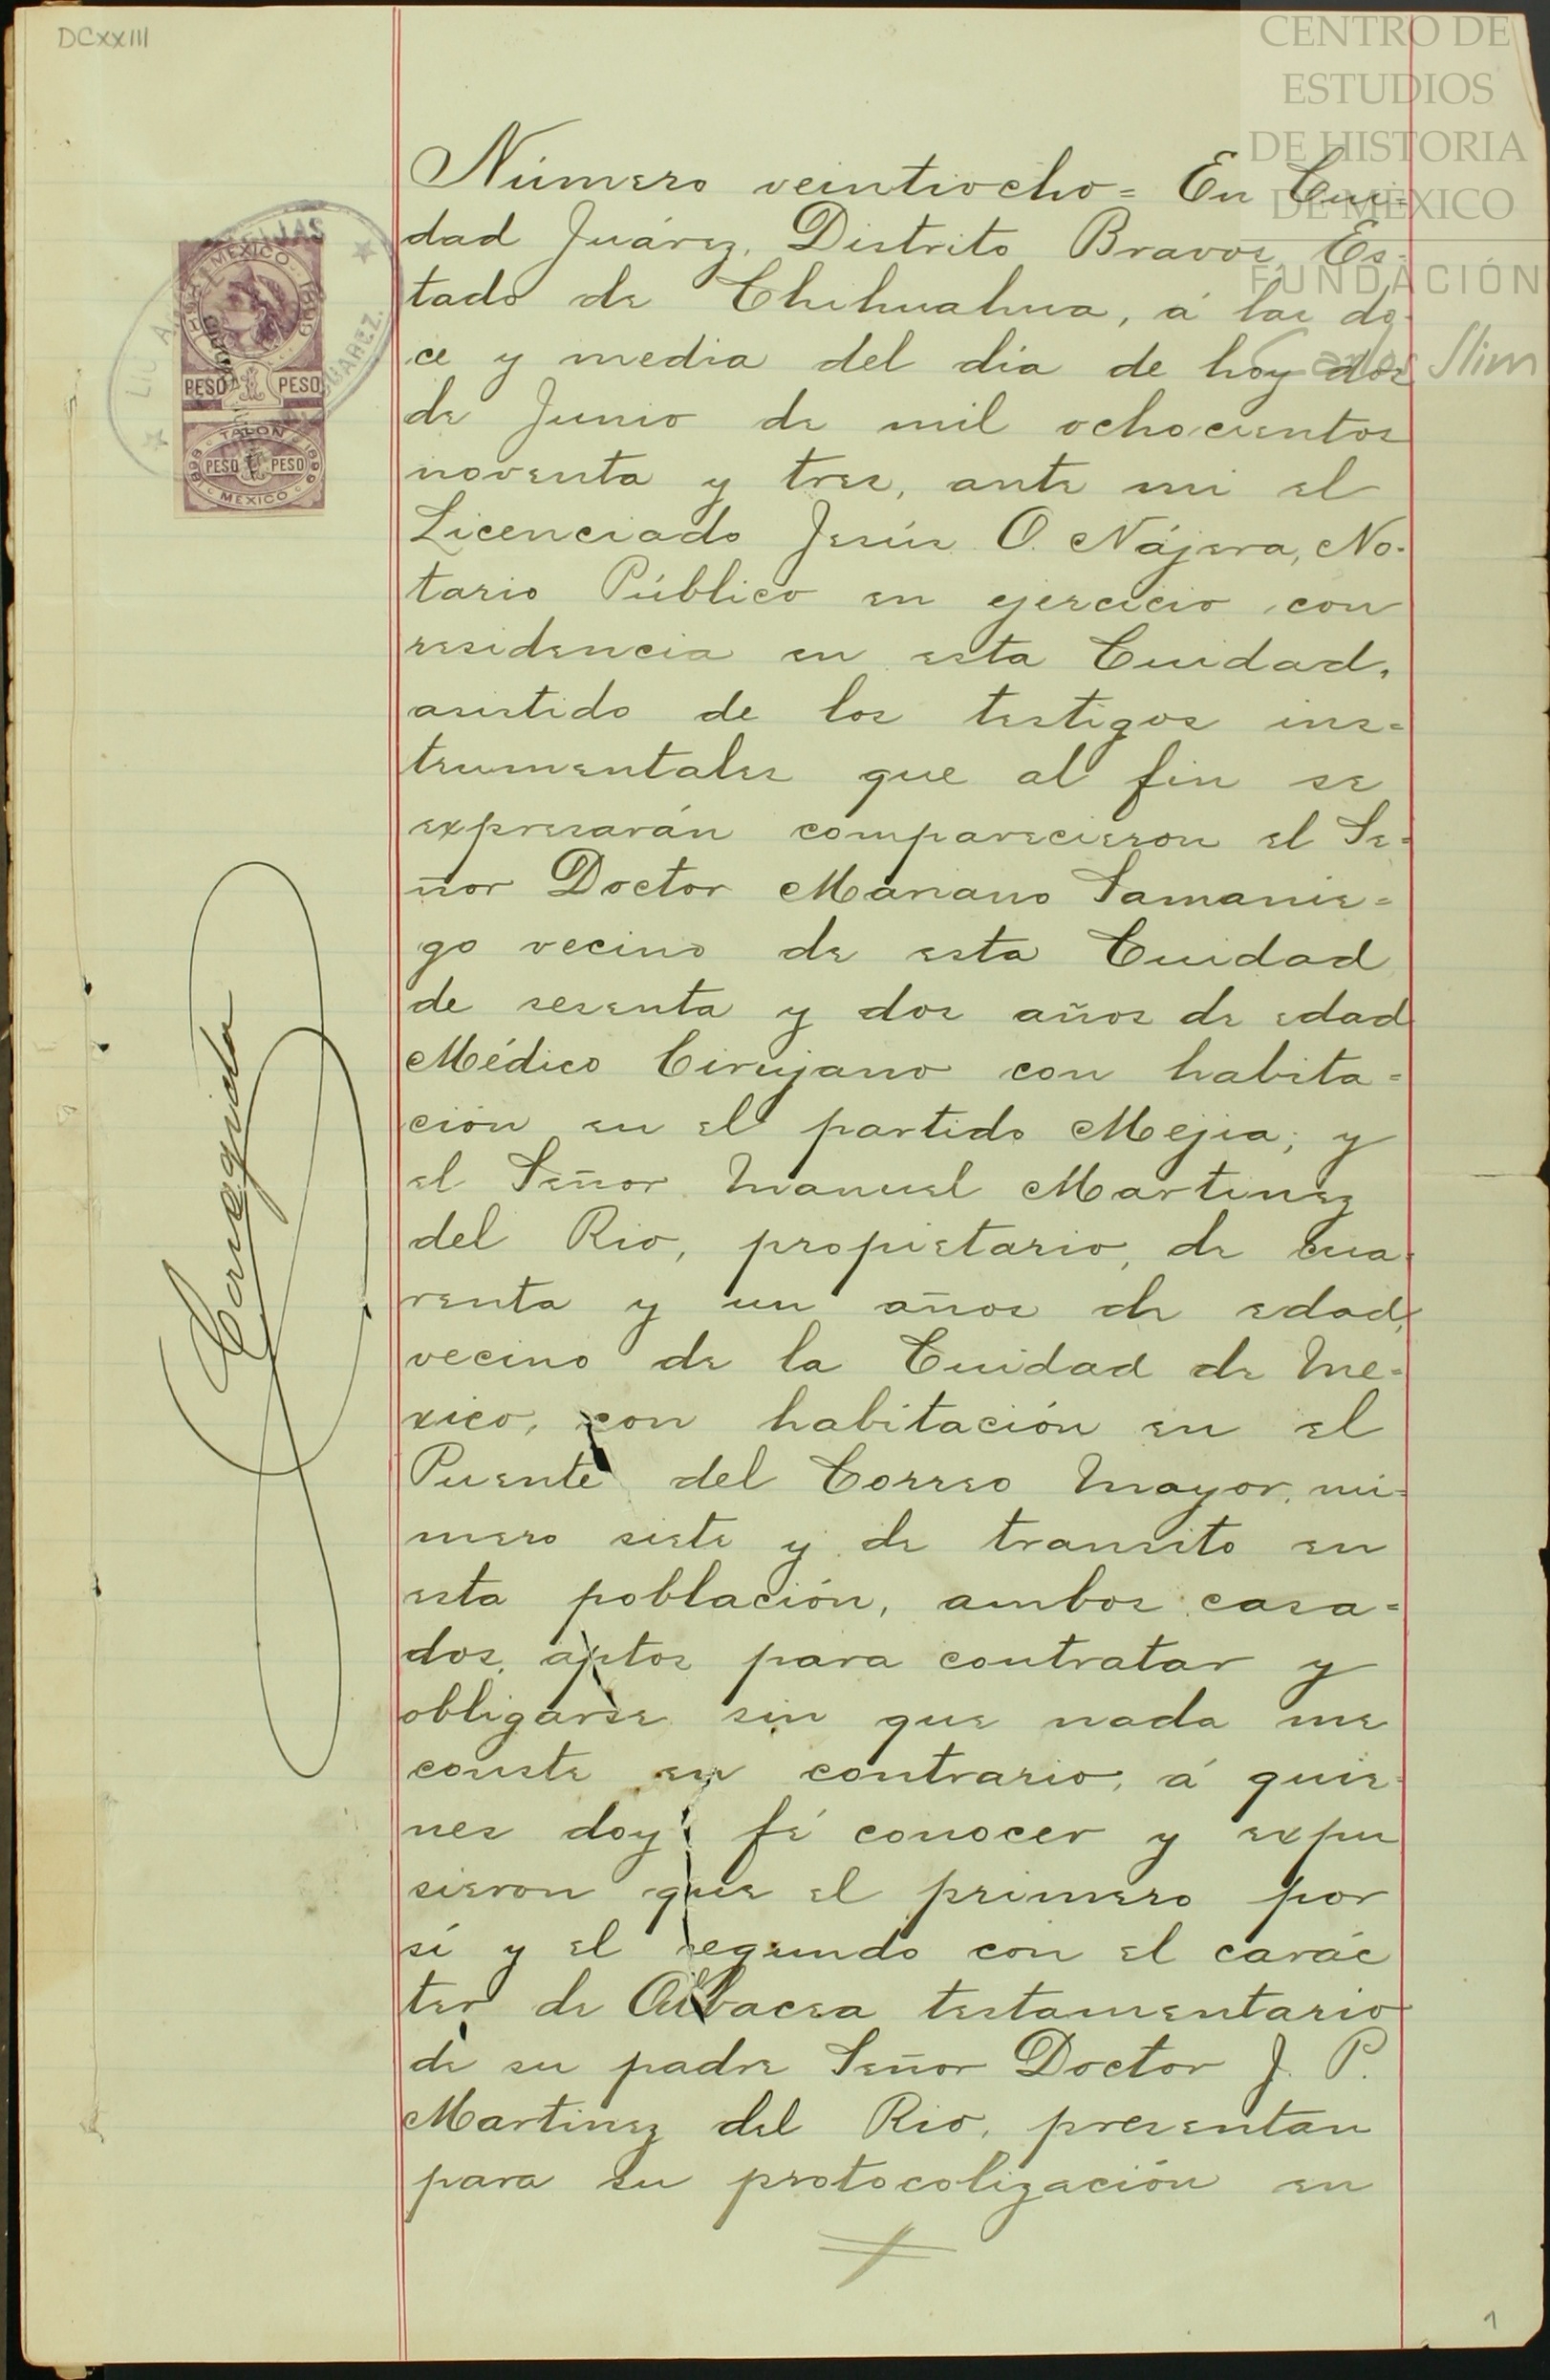 DCXXIII
CENTRO DE
ESTUDIOS
DE HISTORIA
DE MÉXICO
FUNDACIÓN
Carlos Slim
MEXICO
PESO PESO
TALON
PESO PESO
MEXICO
JUAREZ.
Corregida
Número veintiocho = En Cui-
dad Juárez, Distrito Bravos, Es-
tado de Chihuahua, á las do-
ce y media del dia de hoy dos
de Junio de mil ochocientos
noventa y tres, ante mi el
Licenciado Jesús O. Nájera, No-
tario Público en ejercicio con
residencia en esta Cuidad,
asistido de los testigos ins=
trumentales que al fin se
expresarán comparecieron el Se=
ñor Doctor Mariano Samanie=
go vecino de esta Cuidad
de sesenta y dos años de edad
Médico Cirujano con habita=
ción en el partido Mejia; y
el Señor Manuel Martinez
del Rio, propietario, de cua-
renta y un años de edad,
vecino de la Cuidad de Me-
xico, con habitación en el
Puente del Correo Mayor, nú-
mero siete y de transito en
esta población, ambos casa=
dos, aptos para contratar y
obligarse sin que nada me
conste en contrario, á quie-
nes doy fé conocer y expu
sieron que el primero por
sí y el segundo con el carác
ter de Albacea testamentario
de su padre Señor Doctor J. P.
Martinez del Rio, presentan
para su protocolización en
1